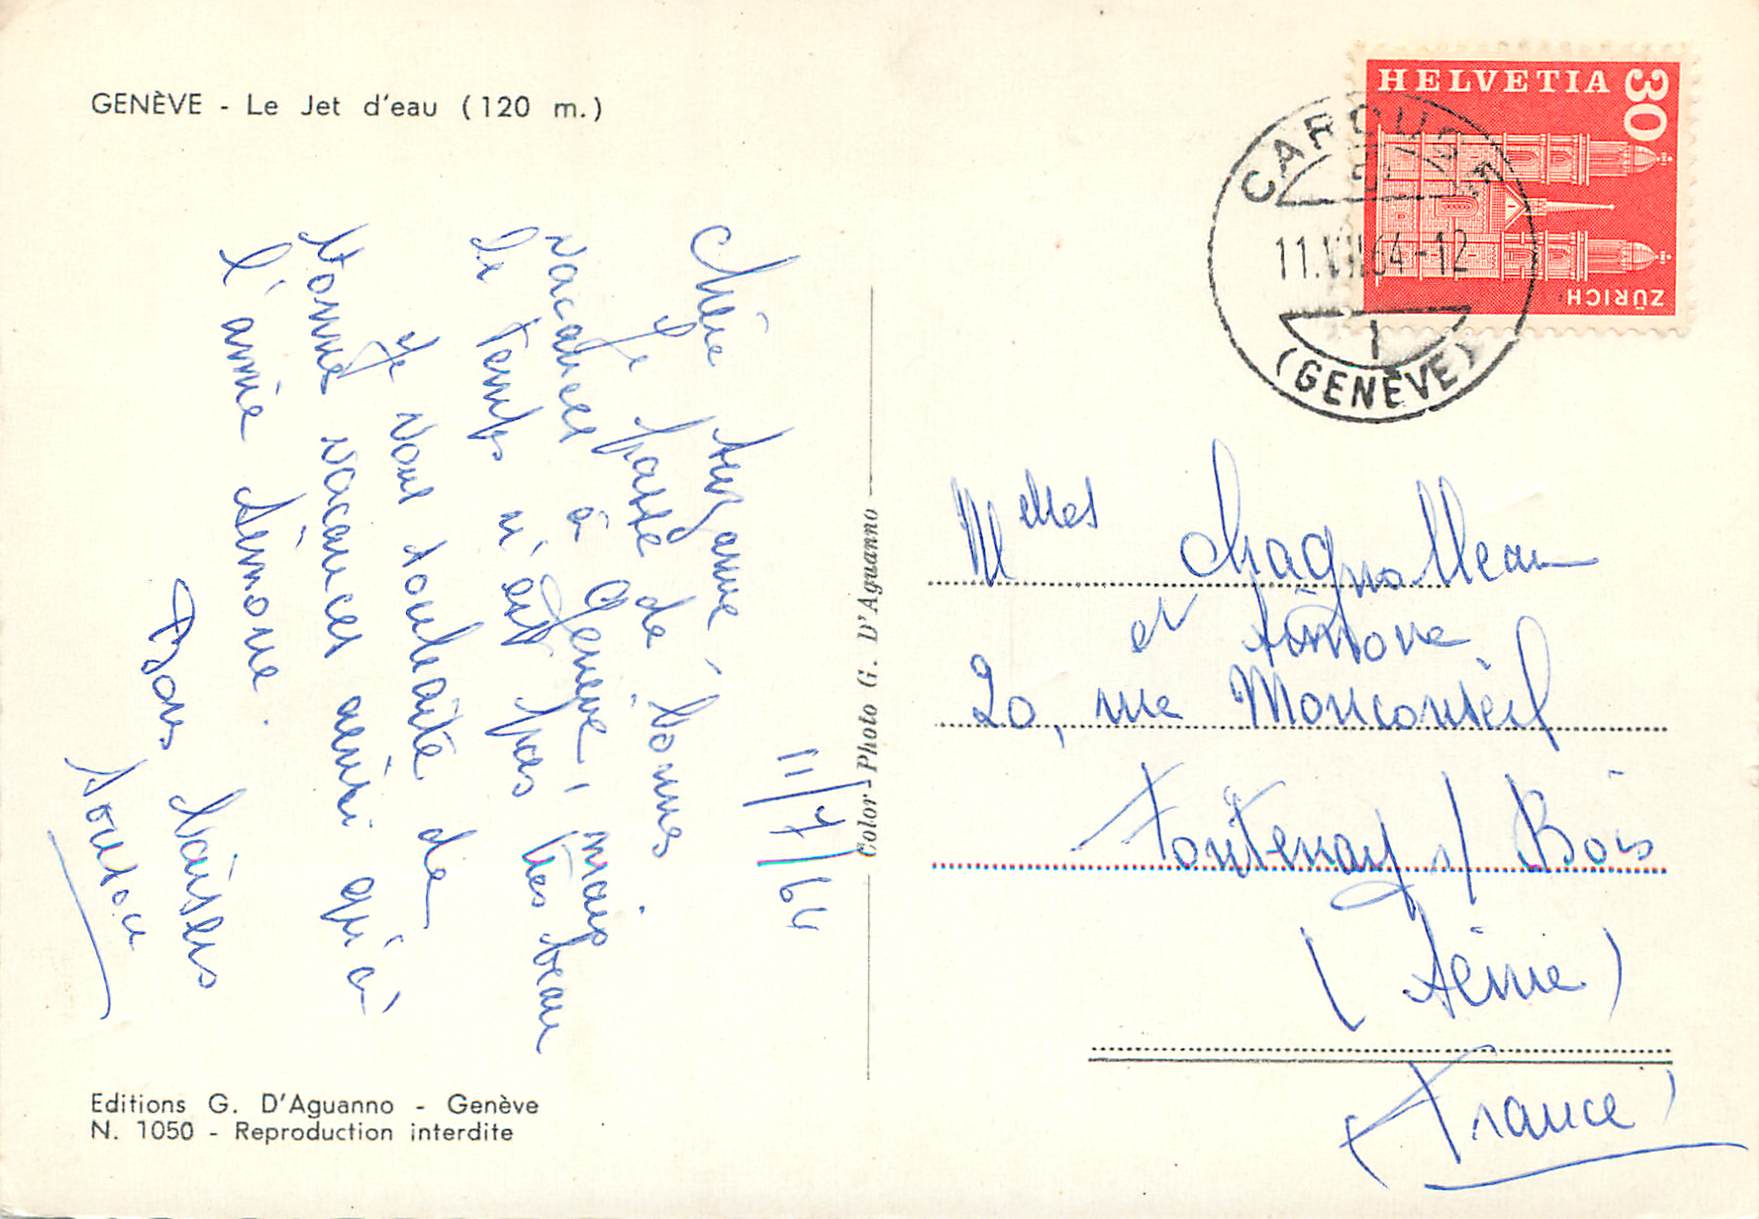 GENÈVE - Le Jet d'eau (120 m.)
11/7/64
Chère Suzanne,
Je passe de bonnes
vacances à Genève, mais
le temps n'est pas très beau
Je vous souhaite de
bonnes vacances ainsi qu'à
l'amie Simone.
Bons baisers
Editions G. D'Aguanno - Genève
N. 1050 - Reproduction interdite
Color-Photo G. D'Aguanno
HELVETIA 30
ZÜRICH
CAROUGE
11.VII.64-12
1
(GENÈVE)
Melles Chagnolleau
et Simone
20, rue Monconseil
Fontenay s/ Bois
(Seine)
France